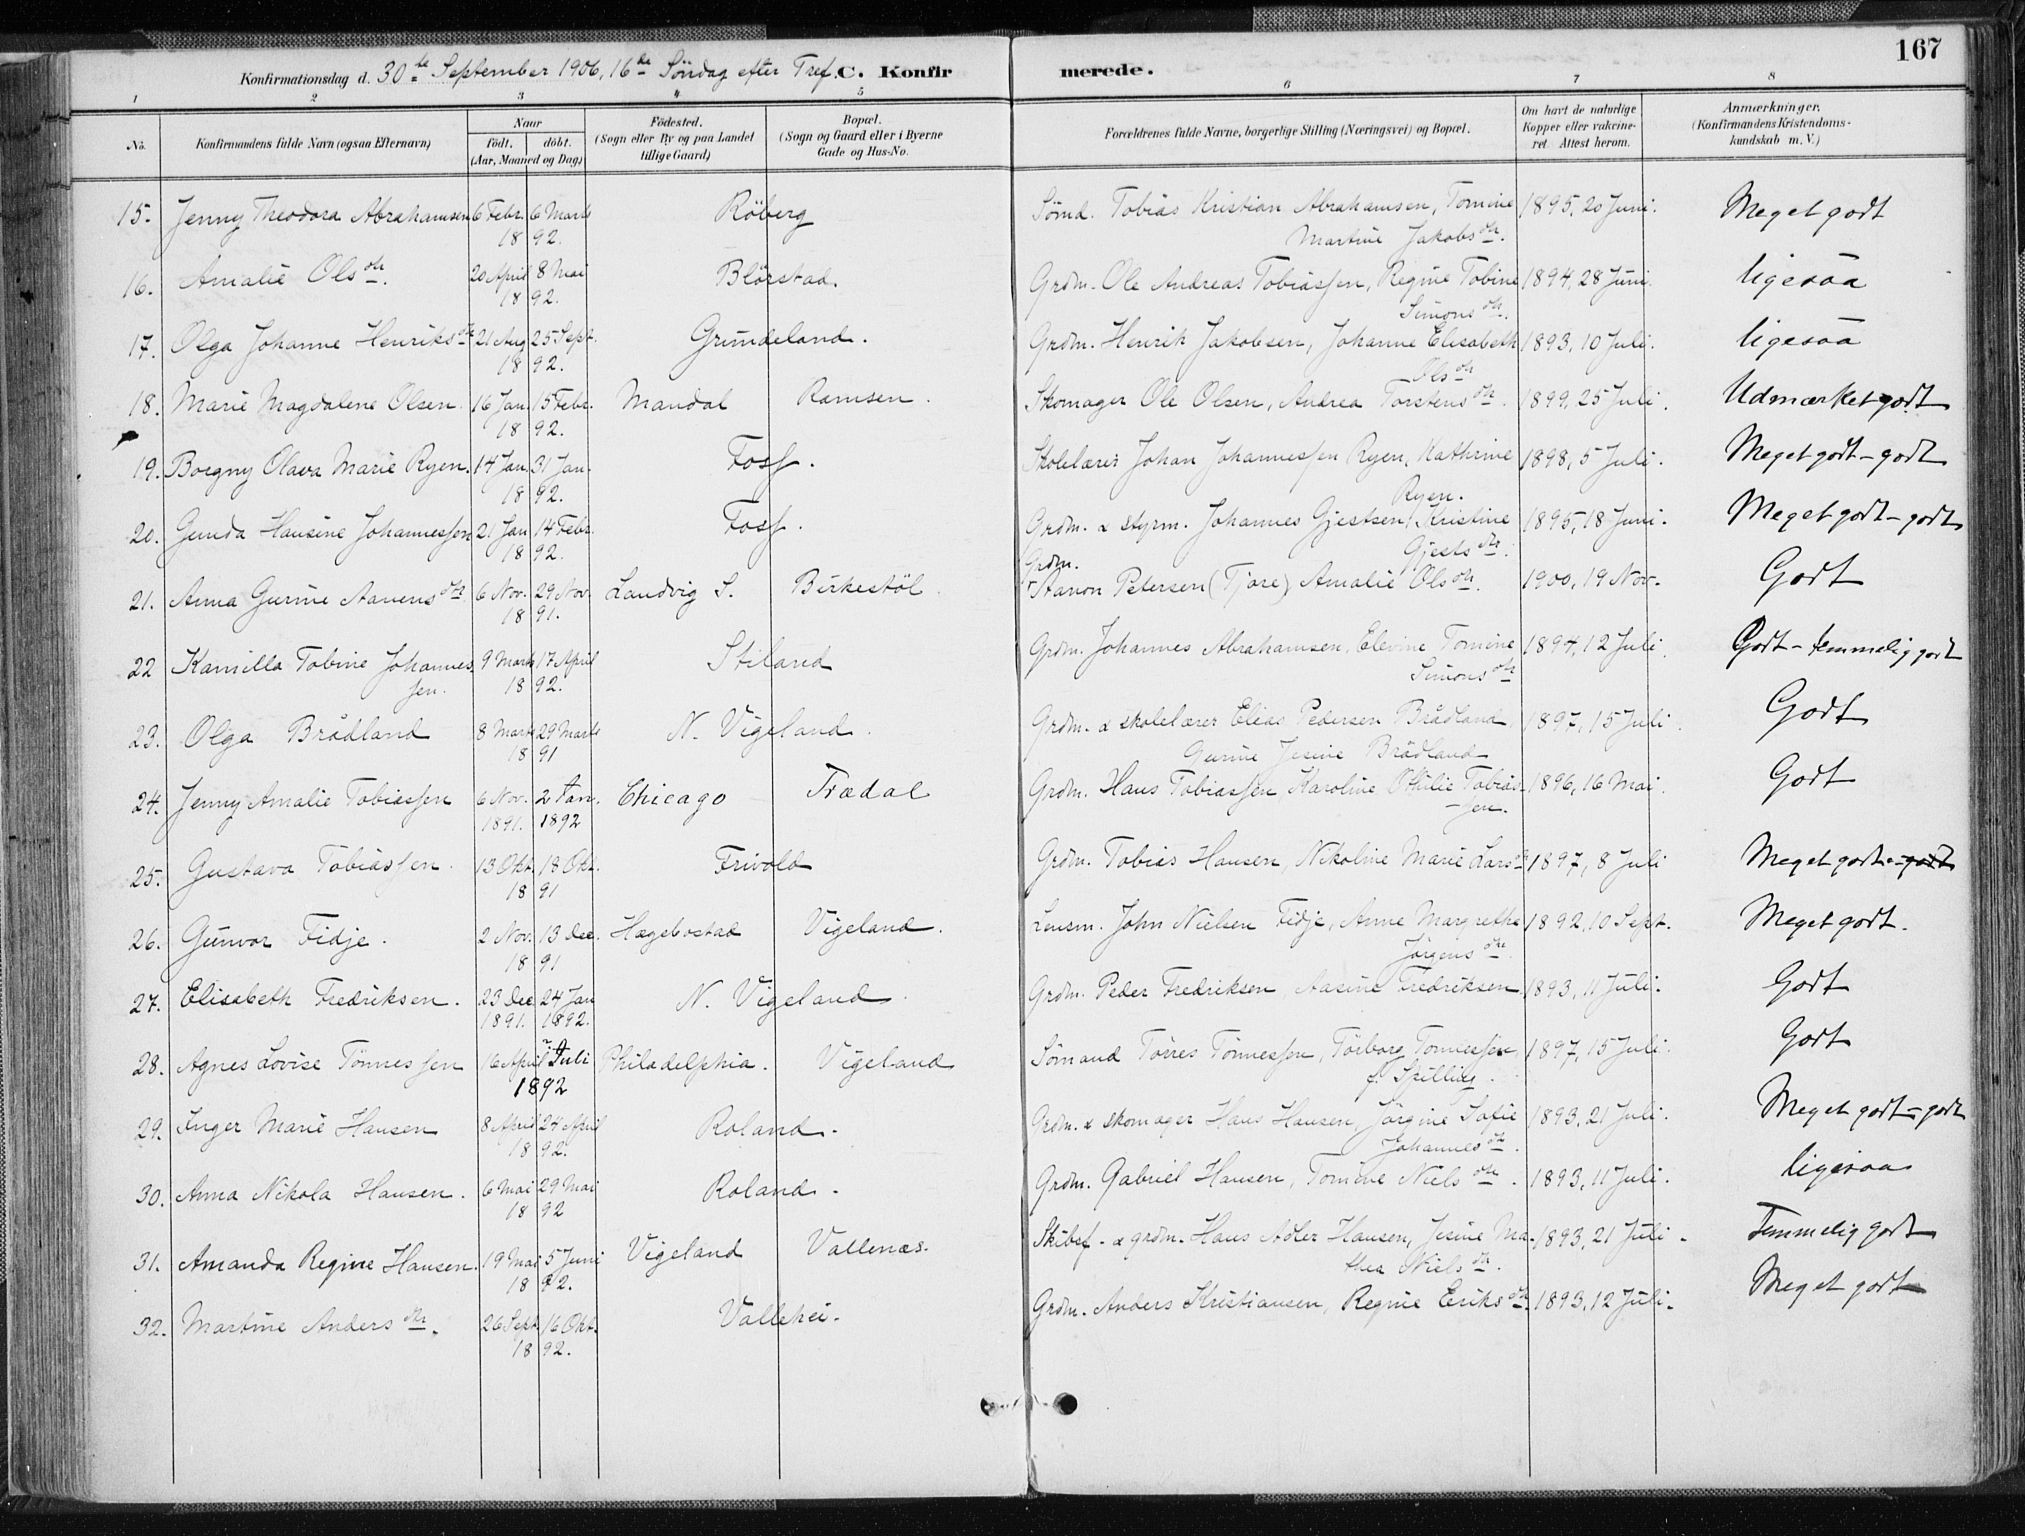 167
Konfirmationsdag d. 30te September 1906, 16de Söndag efter Tref. C. Konfirmerede.
1 2 3 4 5 6 7 8
No. Konfirmandens fulde Navn (ogsaa Efternavn) Naar födt. döbt. (Aar, Maaned og Dag) Födested. (Sogn eller By og paa Landet tillige Gaard) Bopæl. (Sogn og Gaard eller i Byerne Gade og Hus-No. Forældrenes fulde Navne, borgerlige Stilling (Næringsvei) og Bopæl. Om havt de naturlige Kopper eller vakcineret. Attest herom. Anmærkninger. (Konfirmandens Kristendomskundskab m. V.)
15. Jenny Theodora Abrahamsen 6 Febr. 6 Marts Röberg Sömd. Tobias Kristian Abrahamsen, Tomine 1895, 20 Juni. Meget godt
1892. Martine Jakobsdtr.
16. Amalie Olsdtr. 20 April 8 Mai Blörstad. Grdm. Ole Andreas Tobiassen, Regine Tobine 1894, 28 Juni. ligesaa
1892. Simonsdtr.
17. Olga Johanne Henriksdtr 21 Aug 25 Sept. Grundeland. Grdm. Henrik Jakobsen, Johanne Elisabeth 1893, 10 Juli. ligesaa
1892. Olsdtr
18. Marie Magdalene Olsen. 16 Jan. 15 Febr. Mandal Ramsen. Skomager Ole Olsen, Andrea Torstensdtr. 1899, 25 Juli. Udmærket godt
1892.
19. Borgny Olava Marie Ryen. 14 Jan. 31 Jan. Foss. Skolelærer Johan Johannessen Ryen, Kathrine 1898, 5 Juli. Meget godt - godt
1892. Ryen.
20. Gunda Hansine Johannessen 21 Jan 14 Febr. Foss. Grdm. & styrm. Johannes Gjestsen, Kristine 1895, 18 Juni. Meget godt - godt
1892. Gjestsdtr.
Grdm.
21. Anna Gurine Aanensdtr 6 Nov. 29 Nov. Landvig S. Birkestöl. Aanon Petersen (Tjore) Amalie Olsdtr. 1900, 19 Nov. Godt
1891.
22 Kamilla Tobine Johannes- 9 Marts 17 April Stiland Grdm. Johannes Abrahamsen, Elevine Tomine 1894, 12 Juli. Godt - temmelig godt
sen. 1892. Simonsdtr
23. Olga Brådland 8 Marts 29 Marts N. Vigeland. Grdm. & skolelærer Elias Pedersen Brådland 1897, 15 Juli. Godt
1891 Gurine Jesine Brådland
24. Jenny Amalie Tobiassen 6 Nov. 2 Jan. Chicago Trædal Grdm. Hans Tobiassen, Karoline Othilie Tobias- 1896, 16 Mai. Godt
1891. 1892 sen.
25. Gustava Tobiassen. 13 Okt. 18 Okt. Frivold Grdm. Tobias Hansen, Nikoline Marie Larsdtr 1897, 8 Juli Meget godt - godt
1891
26. Gunvor Fidje. 2 Nov. 13 Dec. Hægebostad Vigeland. Lensm. John Nielsen Fidje, Anne Margrethe 1892, 10 Sept. Meget godt.
1891 Jörgensdtr.
27. Elisabeth Fredriksen. 23 Dec 24 Jan N. Vigeland. Grdm. Peder Fredriksen Aasine Fredriksen 1893, 11 Juli. Godt
1891. 1892.
28. Agnes Lovise Tönnessen 16 April Juli Philadelphia. Vigeland Sömand Torres Tönnessen, Torborg Tönnessen 1897, 15 Juli. Godt
1892 f. Spilling.
29. Inger Marie Hansen 8 April 24 April Roland. Grdm. & skomager Hans Hansen, Jörgine Sofie 1893, 21 Juli. Meget godt - godt
1892. Johannesdtr.
30. Anna Nikola Hansen. 6 Mai 29 Mai Roland. Grdm. Gabriel Hansen, Tomine Nielsdtr. 1893, 11 Juli. ligesaa
1892
31. Amanda Regine Hansen. 19 Mai 5 Juni Vigeland Vallenæs. Skibsf. & grdm. Hans Adler Hansen, Jesine Ma- 1893, 21 Juli. Temmelig godt
1892. thea Nielsdtr.
32. Martine Andersdtr. 26 Sept. 16 Okt. Vallehei. Grdm. Anders Kristiansen, Regine Eriksdtr. 1893, 12 Juli. Meget godt
1892.